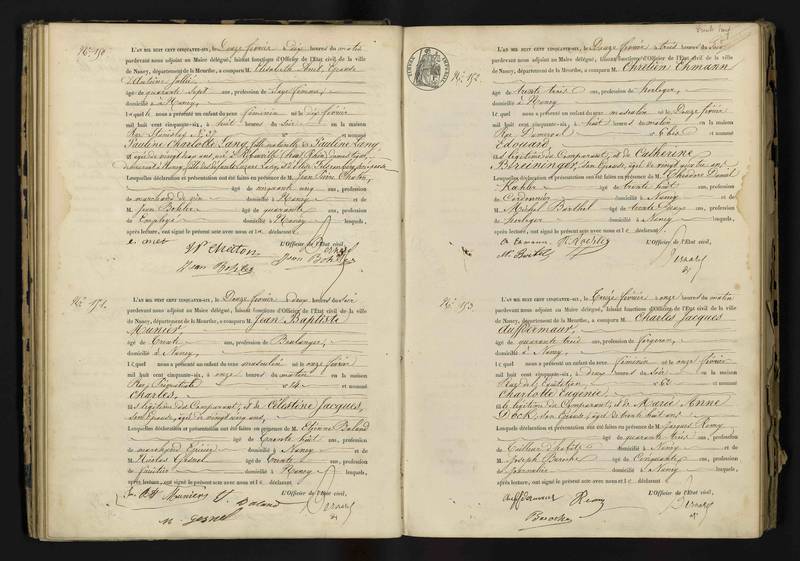 No. 150.
L'AN MIL HUIT CENT CINQUANTE-SIX, le Douze février dix heures du matin
pardevant nous adjoint au Maire délégué, faisant fonctions d'Officier de l'Etat civil de la ville
de Nancy, département de la Meurthe, a comparu M. Elisabeth Epouse
d'Antoine
âgé de quarante Sept ans, profession de Sage femme,
domicilié à Nancy,
lequel nous a présenté un enfant du sexe féminin né le dix février
mil huit cent cinquante-six, à heures du Soir en la maison
Rue Stanislas No. et nommé
Pauline Charlotte Lang, fille naturelle de Pauline Lang,
âgée de vingt
Lesquelles déclaration et présentation ont été faites en présence de M. Jean
âgé de cinquante cinq ans, profession
de marchand de vin domicilié à Nancy et de
M. Jean Bohler âgé de quarante ans, profession
de Employé domicilié à Nancy lesquels,
après lecture, ont signé le présent acte avec nous et le déclarant.
L'Officier de l'Etat civil,
Jean Bohler
Bernard
No. 151.
L'AN MIL HUIT CENT CINQUANTE-SIX, le Douze février deux heures du Soir
pardevant nous adjoint au Maire délégué, faisant fonctions d'Officier de l'Etat civil de la ville
de Nancy, département de la Meurthe, a comparu M. Jean Baptiste
Munier
âgé de Trente ans, profession de Boulanger,
domicilié à Nancy,
lequel nous a présenté un enfant du sexe masculin né le onze février
mil huit cent cinquante-six, à onze heures du matin en la maison
Rue No. 14 et nommé
Charles,
fils légitime du Comparant, et de Célestine Jacques,
son Epouse, âgée de vingt cinq ans,
Lesquelles déclaration et présentation ont été faites en présence de M. Etienne Baland
âgé de trente huit ans, profession
de marchand Epicier domicilié à Nancy et de
M. Nicolas Gesnel âgé de trente ans, profession
de domicilié à Nancy lesquels,
après lecture, ont signé le présent acte avec nous et le déclarant.
L'Officier de l'Etat civil,
Baland
n. gesnel
Bernard
No. 152.
L'AN MIL HUIT CENT CINQUANTE-SIX, le Douze février trois heures du Soir
pardevant nous adjoint au Maire délégué, faisant fonctions d'Officier de l'Etat civil de la ville
de Nancy, département de la Meurthe, a comparu M. Chrétien Ehmann
âgé de trente trois ans, profession de horloger,
domicilié à Nancy
lequel nous a présenté un enfant du sexe masculin né le Douze février
mil huit cent cinquante-six, à huit heures du matin en la maison
Rue No. 6 bis et nommé
Edouard,
fils légitime du Comparant, et de Catherine
Breuninger, son Epouse, âgée de vingt quatre ans
Lesquelles déclaration et présentation ont été faites en présence de M. Théodore Daniel
Kahler âgé de trente huit ans, profession
de Cordonnier domicilié à Nancy et de
M. Michel Barthel âgé de trente deux ans, profession
de horloger domicilié à Nancy lesquels,
après lecture, ont signé le présent acte avec nous et le déclarant.
L'Officier de l'Etat civil,
Bernard
No. 153.
L'AN MIL HUIT CENT CINQUANTE-SIX, le Treize février onze heures du matin
pardevant nous adjoint au Maire délégué, faisant fonctions d'Officier de l'Etat civil de la ville
de Nancy, département de la Meurthe, a comparu M. Charles Jacques
Auffdermaur,
âgé de quarante trois ans, profession de forgeron,
domicilié à Nancy,
lequel nous a présenté un enfant du sexe féminin né le onze février
mil huit cent cinquante-six, à deux heures du Soir en la maison
Rue de l'Equitation, No. 62 et nommé
Charlotte Eugénie
fille légitime du Comparant, et de Marie Anne
Dock, son Epouse, âgée de trente huit ans
Lesquelles déclaration et présentation ont été faites en présence de M. Jacques Remy
âgé de quarante trois ans, profession
de Tailleur d'habits domicilié à Nancy et de
M. Joseph Baroche âgé de cinquante ans, profession
de Journalier domicilié à Nancy lesquels,
après lecture, ont signé le présent acte avec nous et le déclarant.
L'Officier de l'Etat civil,
Auffdermaur Remy
Baroche
Bernard